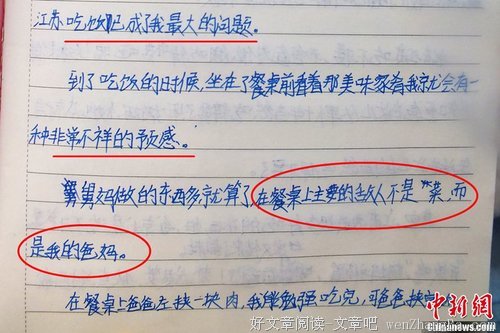 江苏吃饭已成了我最大的问题。
到了吃饭的时候，坐在了餐桌前看着那美味家肴我就会有一
种非常不祥的予感。
舅舅妈做的东西多就算了在餐桌上主要的敌人不是“菜，而
是我的爸妈。
在餐桌上爸爸左挟一块肉，我能勉强吃完，可爸爸挟完
中新网
Chinanews.com
好文章阅读-文章吧 wenzhangba.com